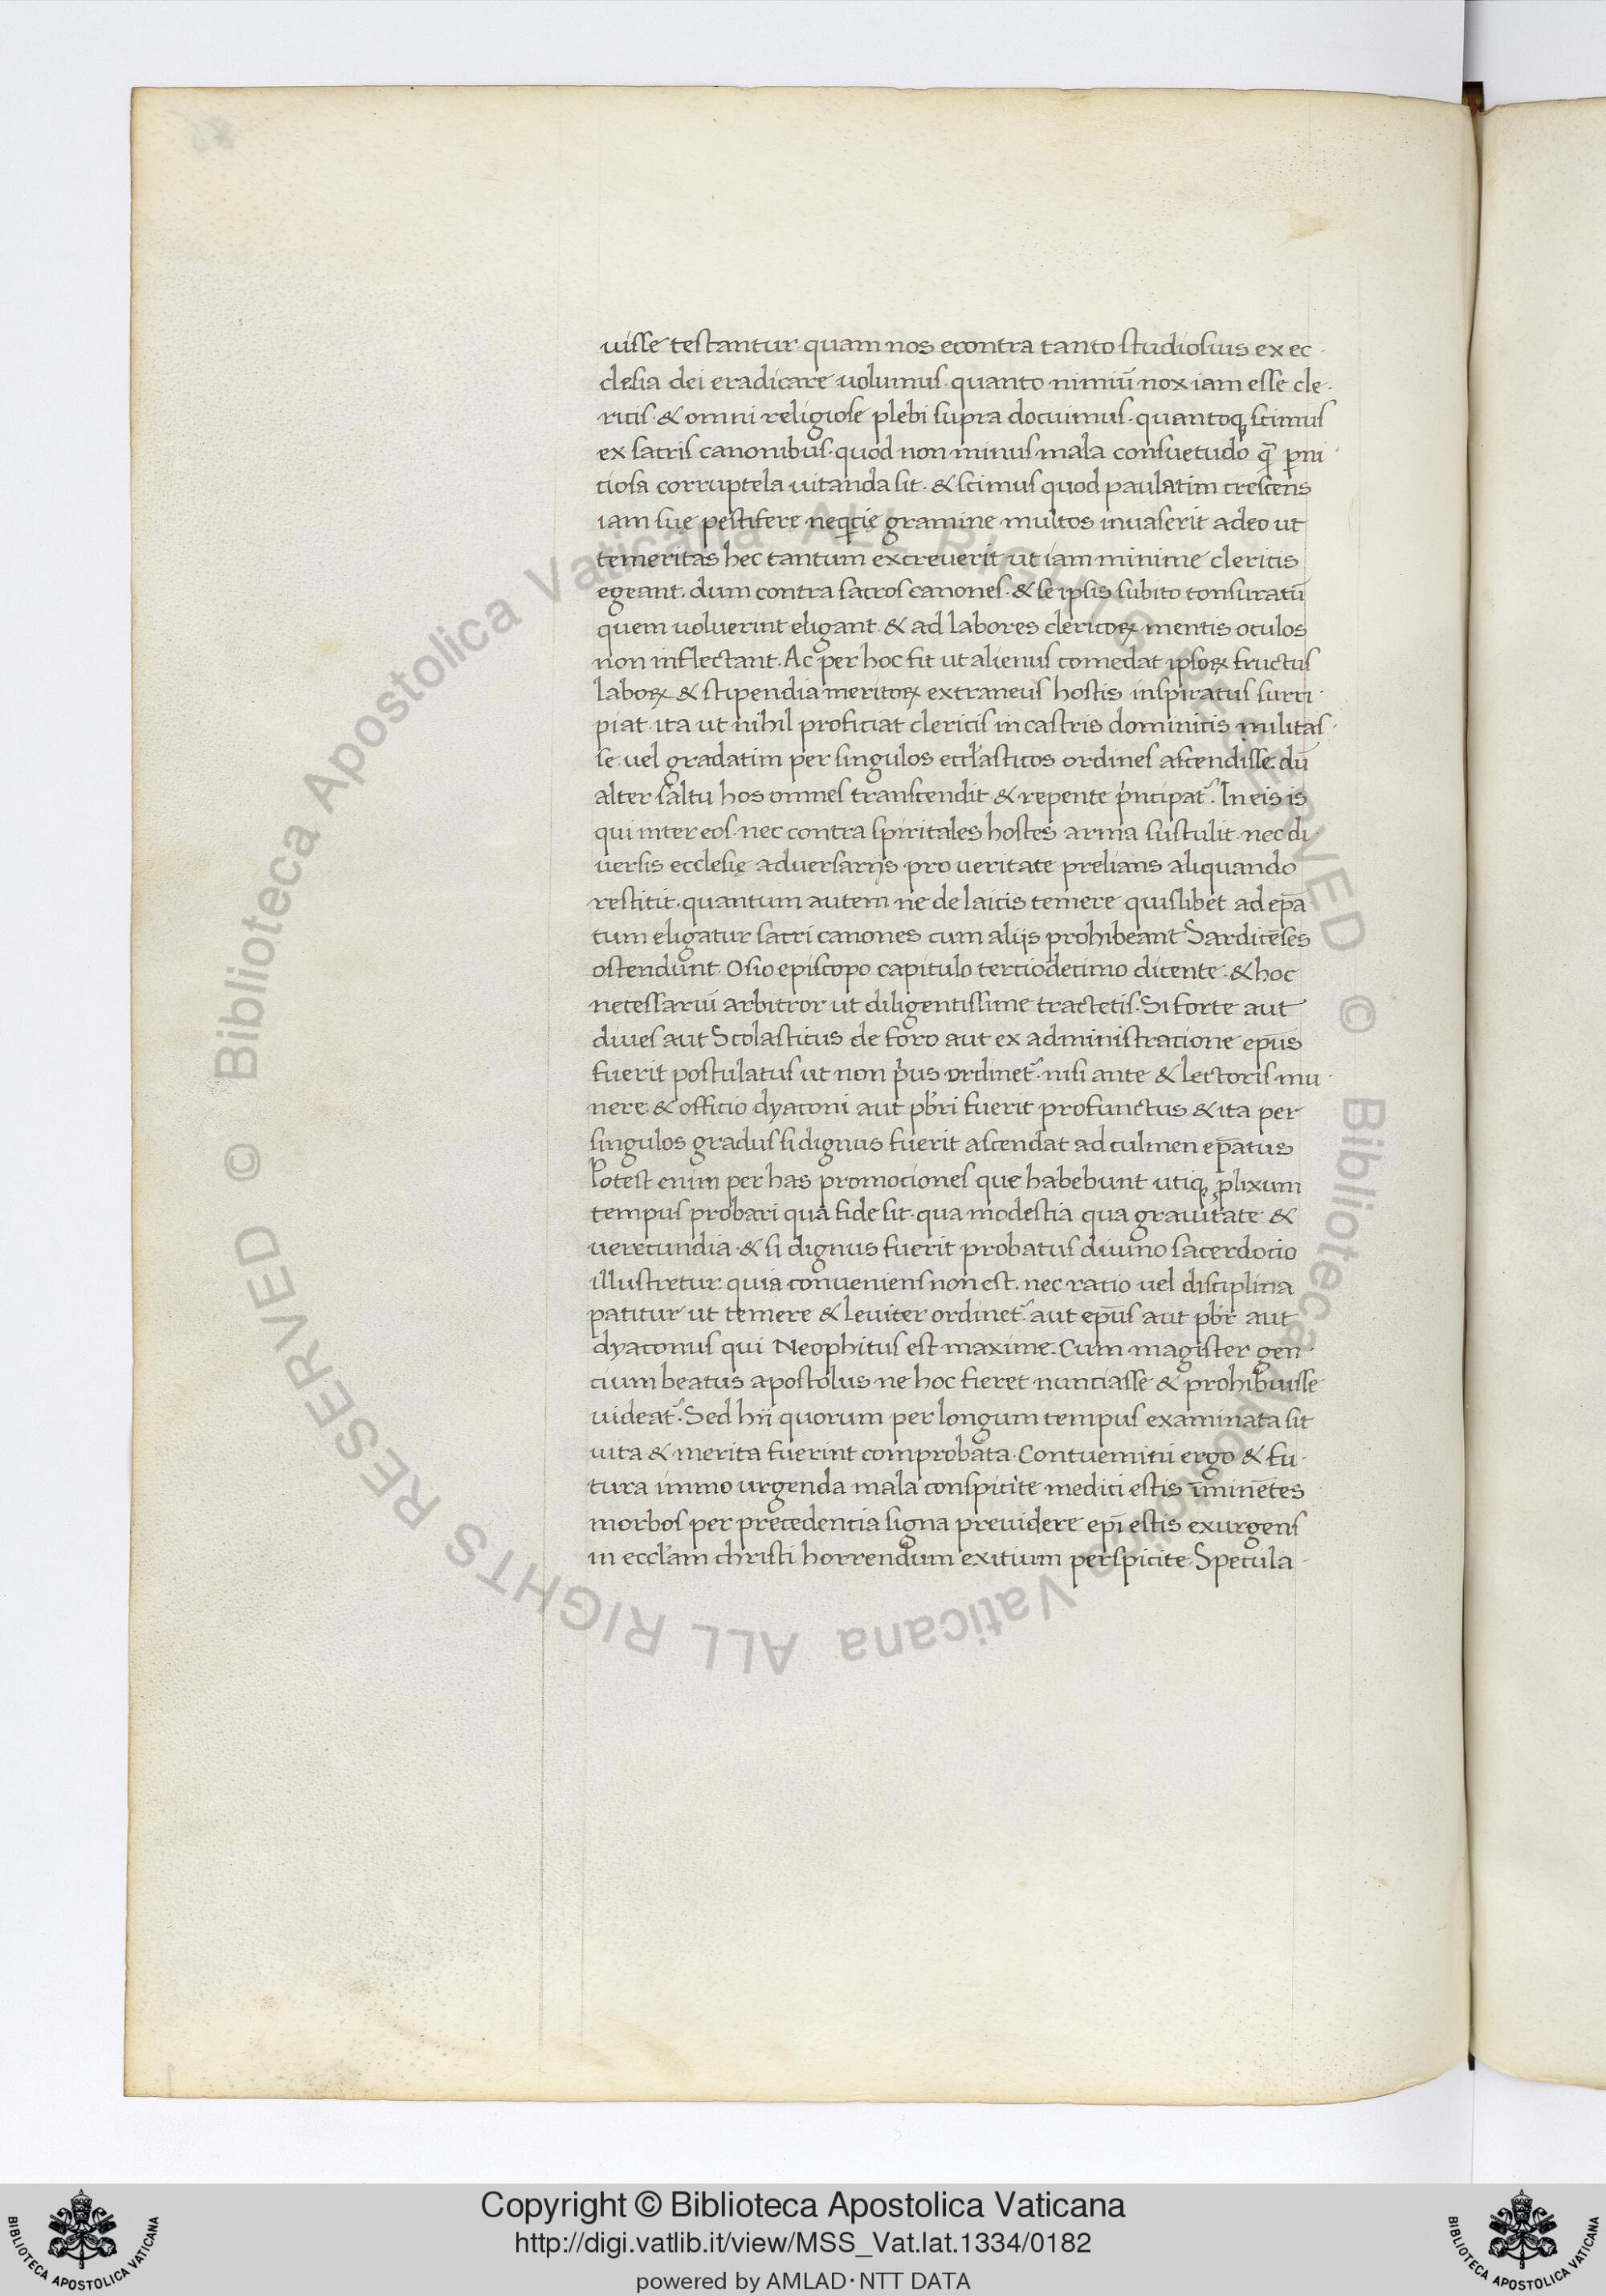 uisse testantur quam nos econtra tanto studiosius ex ec
clesia dei eradicare uolumus · quanto nimiū nox iam esse cle·
ricis · & omni religiose plebi supra docuimus · quantoq; scimus
ex sacris canonibus · quod non minus mala consuetudo q̄ ꝑni
ciosa corruptela uitanda sit · & scimus quod paulatim crescens
iam suę pestifere neq̄cię gramine multos inuaserit adeo ut
temeritas hec tantum excreuerit ut iam minime clericis
egeant. dum contra sacros canones · & se ipsis subito tonsuratū
quem uoluerint eligant & ad labores clericoꝝ mentis oculos
non inflectant. Ac per hoc fit ut alienus comedat ipsoꝝ fructus
laboꝝ & stipendia meritoꝝ extraneus hostis inspiratus surri·
piat · ita ut nihil proficiat clericis in castris dominicis militas·
se uel gradatim per singulos eccl'asticos ordines ascendisse. dū
alter saltu hos omnes transcendit & repente p'ncipat'. In eis is
qui inter eos · nec contra spiritales hostes arma sustulit · nec di·
uersis ecclesię aduersarijs pro ueritate prelians aliquando
restitit · quantum autem ne de laicis temere quislibet ad ep̄a
tum eligatur sacri canones cum alijs prohibeant Sardicēses
ostendunt · Osio episcopo capitulo terciodecimo dicente · & hoc
necessariū arbitror ut diligentissime tractetis. Si forte aut
diues aut Scolasticus de foro aut ex administracione ep̄us
fuerit postulatus ut non p'us ordinet' · nisi ante & lectoris mu·
nere & officio dyaconi aut pb'ri fuerit profunctus & ita per
singulos gradus si dignus fuerit ascendat ad culmen ep̄atus
Potest enim per has promociones que habebunt utiq; ꝓlixum
tempus probari qua fide sit · qua modestia qua grauitate &
uerecundia · & si dignus fuerit probatus diuino sacerdocio
illustretur quia conueniens non est. nec ratio uel disciplina
patitur ut temere & leuiter ordinet' aut ep̄us aut pb'r aut
dyaconus qui Neophitus est maxime. Cum magister gen·
cium beatus apostolus ne hoc fieret nunciasse & prohibuisse
uideat'. Sed hii quorum per longum tempus examinata sit
uita & merita fuerint comprobata. Contuemini ergo & fu·
tura immo urgenda mala conspicite medici estis īminētes
morbos per precedencia signa preuidere ep̄i estis exurgens
in eccl'am christi horrendum exitium perspicite. Specula·
Copyright © Biblioteca Apostolica Vaticana
http://digi.vatlib.it/view/MSS_Vat.lat.1334/0182
powered by AMLAD·NTT DATA
BIBLIOTECA APOSTOLICA VATICANA
BIBLIOTECA APOSTOLICA VATICANA
© Biblioteca Apostolica Vaticana ALL RIGHTS RESERVED © Biblioteca Apostolica Vaticana ALL RIGHTS RESERVED